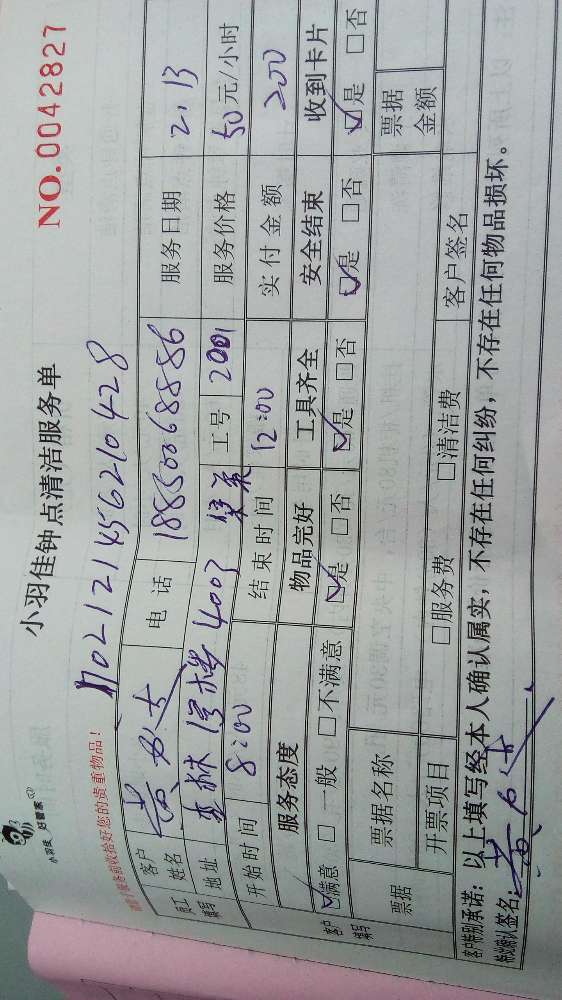 小羽佳 好管家
小羽佳钟点清洁服务单
NO.0042827
1702121456210428
请您于服务前收拾好您的贵重物品!
员工填写
客户姓名 黄女士 电话 18850068886 服务日期 2.13
地址 4003 工号 2001 服务价格 50元/小时
开始时间 8:00 结束时间 12:00 实付金额 200
客户填写
服务态度 物品完好 工具齐全 安全结束 收到卡片
☑满意 □一般 □不满意 ☑是 □否 ☑是 □否 ☑是 □否 ☑是 □否
票据
票据名称 票据金额
开票项目 □服务费 □清洁费 客户签名
客户特别承诺:以上填写经本人确认属实,不存在任何纠纷,不存在任何物品损坏。
特此确认签名:黄女士